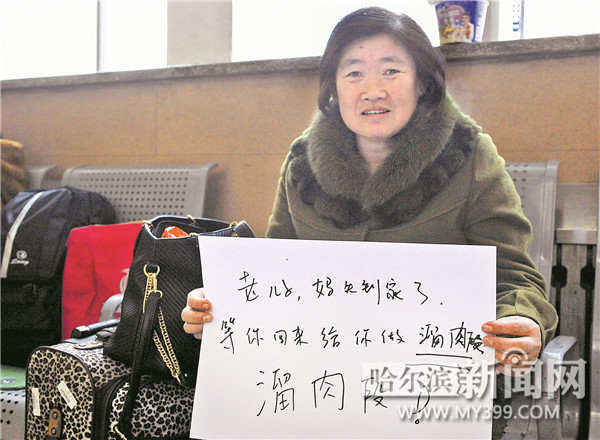 老儿子,妈先到家了.
等你回来给你做 溜肉段
溜肉段!!
哈尔滨新闻网
WWW.MY399.COM